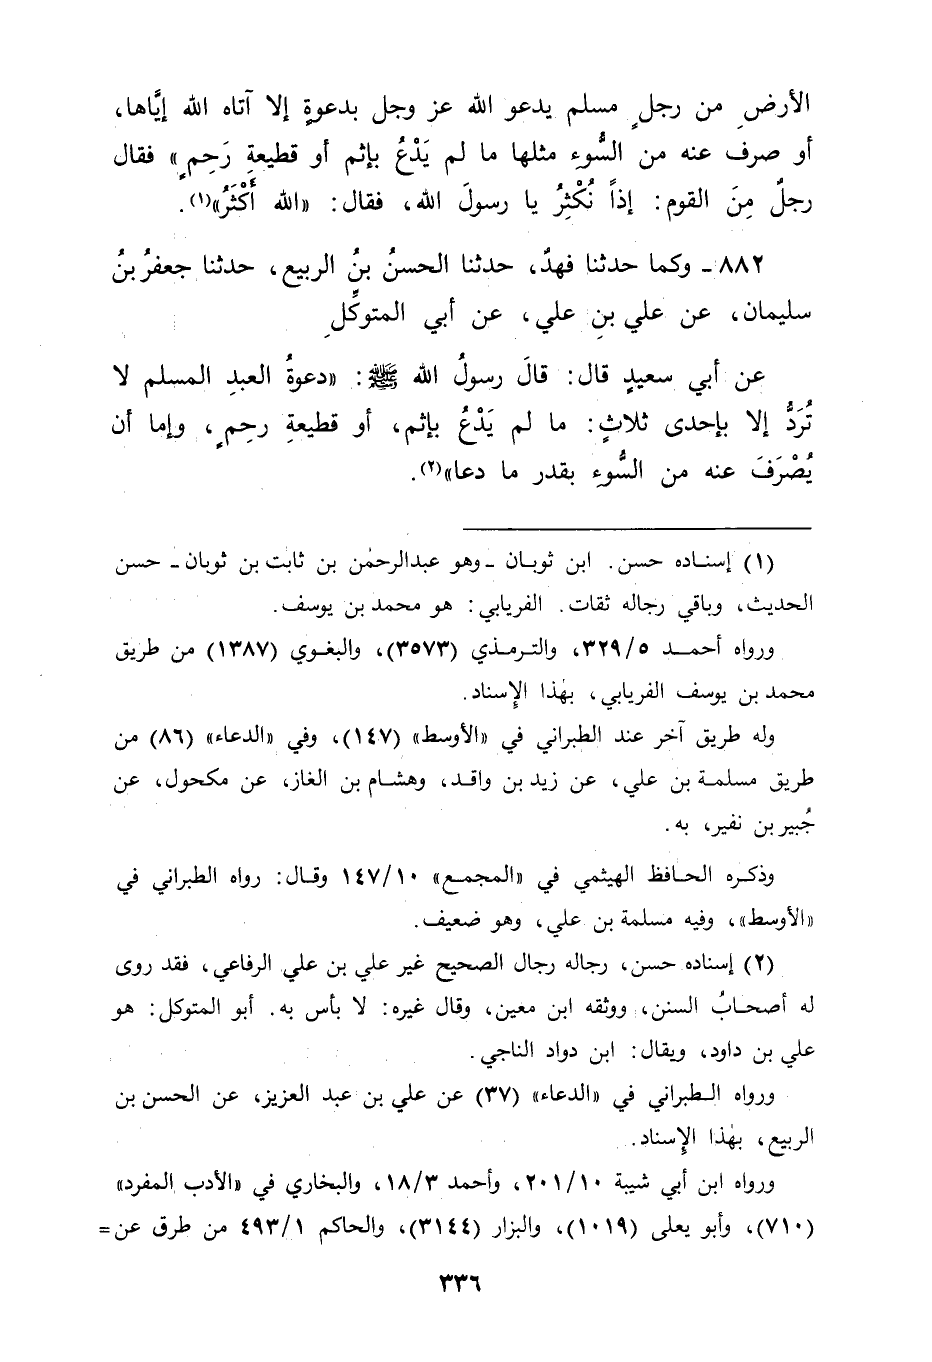 الأرضِ من رجلٍ مسلم يدعو الله عز وجل بدعوةٍ إلا آتاه الله إيَّاها،
أو صرف عنه من السُّوءِ مثلها ما لم يَدْعُ بإثم أو قطيعةِ رَحِمٍ» فقال
رجلٌ مِنَ القوم: إذاً نُكْثِرُ يا رسولَ الله، فقال: «الله أَكْثَرُ»(١).
٨٨٢ ـ وكما حدثنا فهدٌ، حدثنا الحسنُ بنُ الربيع، حدثنا جعفرُ بنُ
سليمان، عن علي بنِ علي، عن أبي المتوكِّلِ
عن أبي سعيدٍ قال: قالَ رسولُ الله ﷺ: «دعوةُ العبدِ المسلم لا
تُرَدُّ إلا بإحدى ثلاثٍ: ما لم يَدْعُ بإثم، أو قطيعةِ رحِمٍ، وإما أن
يُصْرَفَ عنه من السُّوءِ بقدر ما دعا»(٢).
(١) إسناده حسن. ابن ثوبان ـ وهو عبدالرحمٰن بن ثابت بن ثوبان ـ حسن
الحديث، وباقي رجاله ثقات. الفريابي: هو محمد بن يوسف.
ورواه أحمد ٣٢٩/٥، والترمذي (٣٥٧٣)، والبغوي (١٣٨٧) من طريق
محمد بن يوسف الفريابي، بهٰذا الإسناد.
وله طريق آخر عند الطبراني في «الأوسط» (١٤٧)، وفي «الدعاء» (٨٦) من
طريق مسلمة بن علي، عن زيد بن واقد، وهشام بن الغاز، عن مكحول، عن
جُبير بن نفير، به.
وذكره الحافظ الهيثمي في «المجمع» ١٤٧/١٠ وقال: رواه الطبراني في
«الأوسط»، وفيه مسلمة بن علي، وهو ضعيف.
(٢) إسناده حسن، رجاله رجال الصحيح غير علي بن علي الرفاعي، فقد روى
له أصحابُ السنن، ووثقه ابن معين، وقال غيره: لا بأس به. أبو المتوكل: هو
علي بن داود، ويقال: ابن دواد الناجي.
ورواه الطبراني في «الدعاء» (٣٧) عن علي بن عبد العزيز، عن الحسن بن
الربيع، بهٰذا الإسناد.
ورواه ابن أبي شيبة ٢٠١/١٠، وأحمد ١٨/٣، والبخاري في «الأدب المفرد»
(٧١٠)، وأبو يعلى (١٠١٩)، والبزار (٣١٤٤)، والحاكم ٤٩٣/١ من طرق عن=
٣٣٦